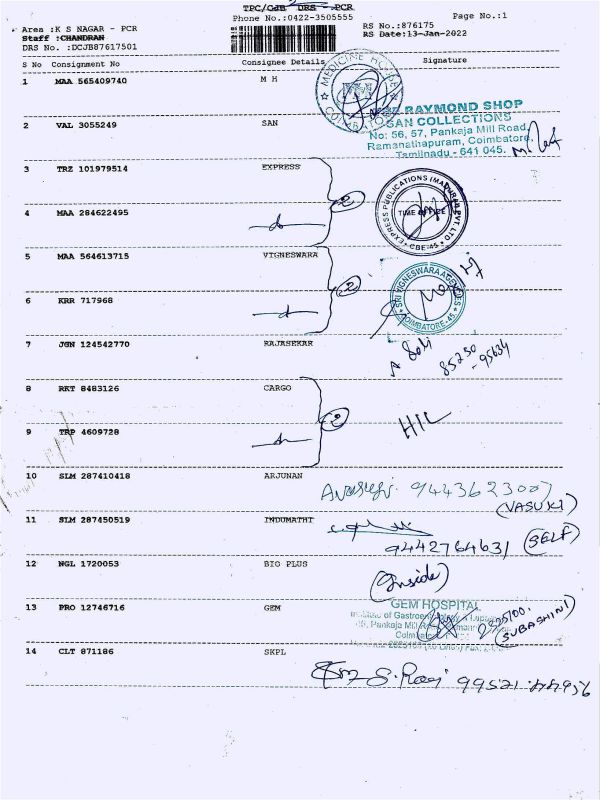 TPC/CdB DRS - PCR
Phone No.:0422-3505555
Page No.:1
Area :K S NAGAR - PCR
RS No.:876175
Staff :CHANDRAN
RS Date:13-Jan-2022
DRS No. :DCJB87617501
S No Consignment No Consignee Details Signature
1 MAA 565409740 M H
MEDICINE HOUSE
COIMBATORE
RAYMOND SHOP
2 VAL 3055249 SAN
SAN COLLECTIONS
No: 56, 57, Pankaja Mill Road,
Ramanathapuram, Coimbatore,
Tamilnadu - 641 045.
3 TRZ 101979514 EXPRESS
2
EXPRESS PUBLICATIONS (MADURAI) PVT. LTD
TIME OFFICE
CBE-45
4 MAA 284622495
5 MAA 564613715 VIGNESWARA
2
SRI VIGNESWARA AGENCIES
COIMBATORE-45
6 KRR 717968
7 JGN 124542770 RAJASEKAR
85250
-95634
8 RKT 8483126 CARGO
2
HIL
9 TRP 4609728
10 SLM 287410418 ARJUNAN
9443623007
(VASUKI)
11 SLM 287450519 INDUMATHI
9442764631 (SELF)
12 NGL 1720053 BIO PLUS
(Inside)
13 PRO 12746716 GEM
GEM HOSPITAL
Pankaja Mill
(SUBASHINI)
14 CLT 871186 SKPL
S. Ravi